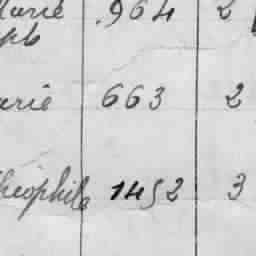 Marie .964 2
ph
arie 663 2
heophile 1452 3